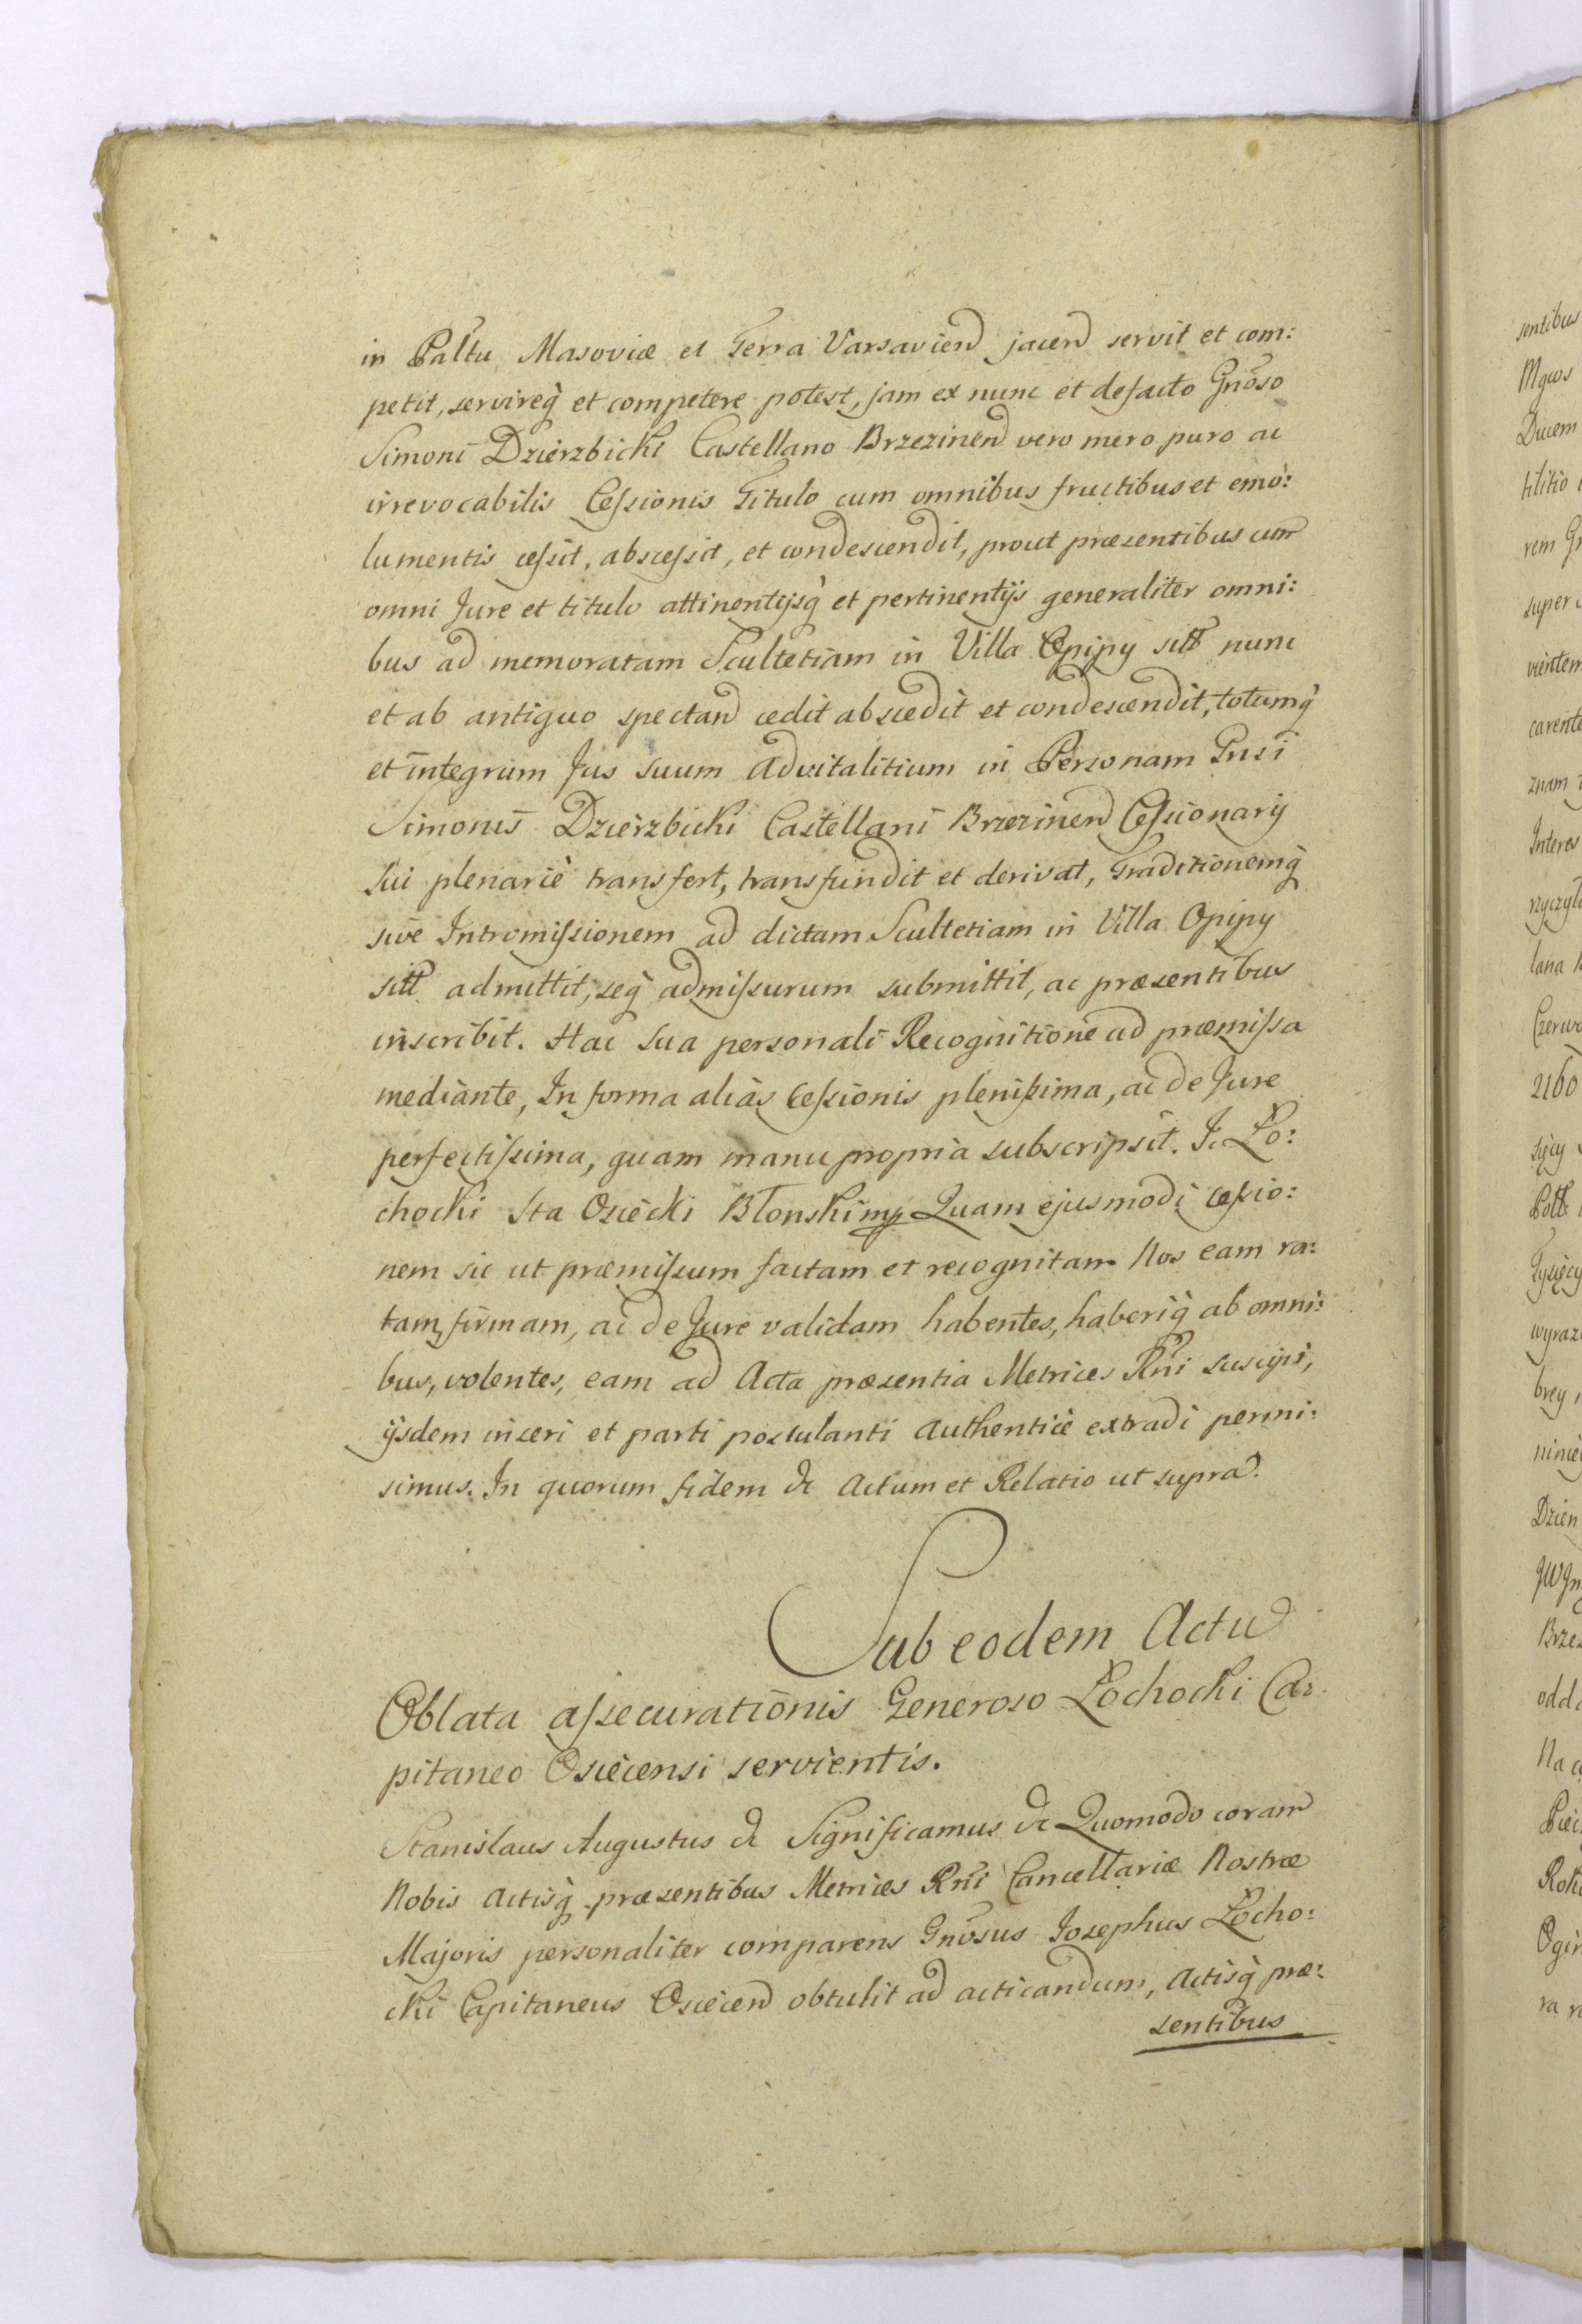 in Pal̃tu Masoviæ et Terra Varsavien̄ jacen̄ servit et com:
petit, servireq̀ et competere potest, jam ex nunc et defacto Gnõso
Simoni Dzierzbicki Castellano Brzezinen̄ vero mero puro ac
irrevocabilis Cessionis Titulo cum omnibus fructibus et emo:
lumentis cessit, abscessit, et condescendit, prout præsentibus cum
omni Jure et titulo attinentijsq̀ et pertinentijs generaliter omni:
bus ad memoratam Scultetiam in Villa Opipy sitt nunc
et ab antiquo spectan̄ cedit abscedit et condescendit, totumq̀
et integrum Jus suum Advitalitium in Personam Gnsi
Simonis Dzierzbicki Castellani Brzezinen̄ Cessionarij
sui plenariè transfert, transfundit et derivat, Traditionemq̀
sivè Intromissionem ad dictam Scultetiam in Villa Opipy
sitt admittit, seq̀ admissurum submittit, ac præsentibus
inscribit. Hac sua personali Recognitione ad præmissa
mediante, In forma aliàs Cessionis plenissima, ac de Jure
perfectissima, quam manu propria subscripsit. J. Ło:
chocki Sta Osiecki Błonski mp Quam ejusmodi cessio:
nem sic ut præmissum factam et recognitam Nos eam ra:
tam, firmam, ac de Jure validam habentes, haberiq̀ ab omni:
bus, volentes, eam ad Acta præsentia Metrices Rñi suscipi,
ijsdem inseri et parti postulanti Authenticè extradi permi:
simus. In quorum fidem &c Actum et Relatio ut supra.
Sub eodem Actu
Oblata assecurationis Generoso Łochocki Ca:
pitaneo Osiecensi servientis.
Stanislaus Augustus &c Significamus &c Quomodo coram
Nobis Actisq̀ præsentibus Metrices Rñi Cancellariæ Nostræ
Majoris personaliter comparens Gnõsus Josephus Łocho:
cki Capitaneus Osiecen̄ obtulit ad acticandum, Actisq̀ præ:
sentibus
sentibus
Mgcos
Ducem
rem
super
vientem
znam
Interes
lana
2160
Dzien
Na